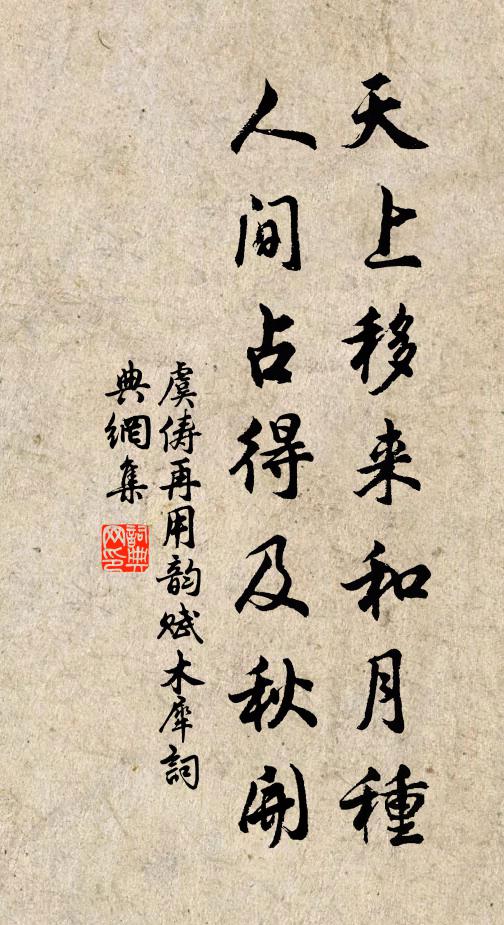 天上移来和月種
人间占得及秋開
虞俦再用韵赋木犀詞
典網集
詞典网印